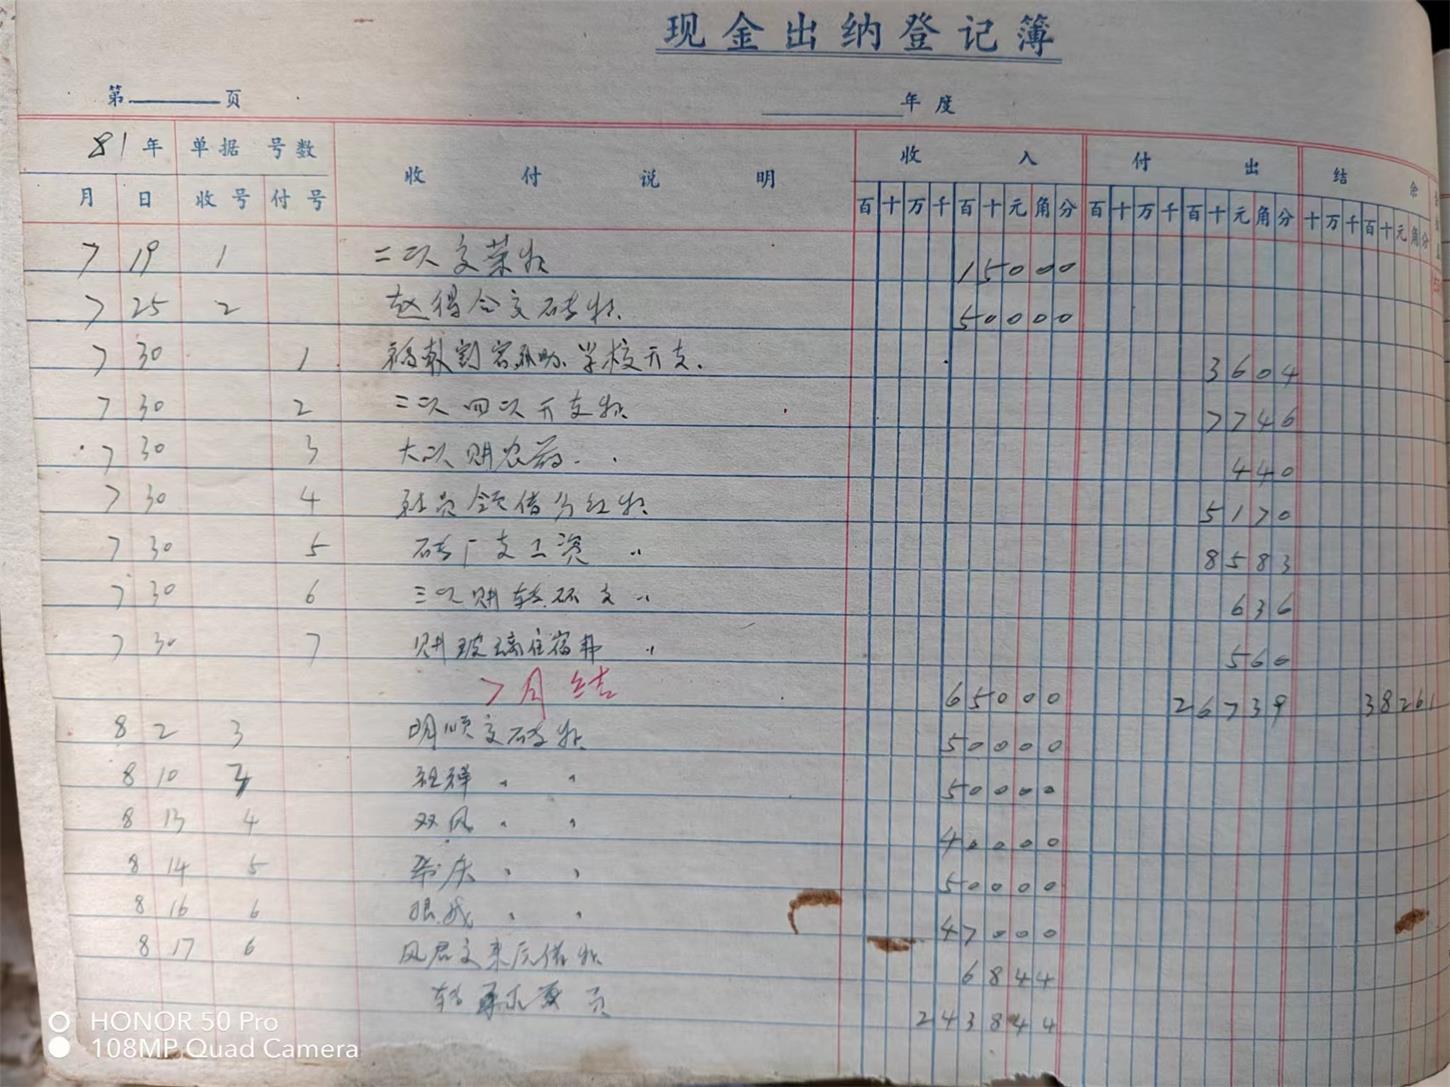 现金出纳登记簿
第 页 年度
81年 单据 号数 收付说明 收入 付出 结余
月 日 收号 付号 百十万千百十元角分 百十万千百十元角分 十万千百十元角分
7 19 1 二队交菜款 15000
7 25 2 赵得合交砖款 50000
7 30 1 学校开支. 3604
7 30 2 二队四队开支款 7746
7 30 3 大队购农药 440
7 30 4 社员领借分红款 5170
7 30 5 砖厂支工资 〃 8583
7 30 6 三队购 支 〃 636
7 30 7 购玻璃住宿费 〃 560
7月结 65000 26739 38261
8 2 3 明顺交砖款 50000
8 10 祖祥 〃 〃 50000
8 13 4 双风 〃 〃 40000
8 14 5 庆 〃 〃 50000
8 16 6 〃 〃 47000
8 17 6 风君交来 借款 6844
转 页 243844
HONOR 50 Pro
108MP Quad Camera